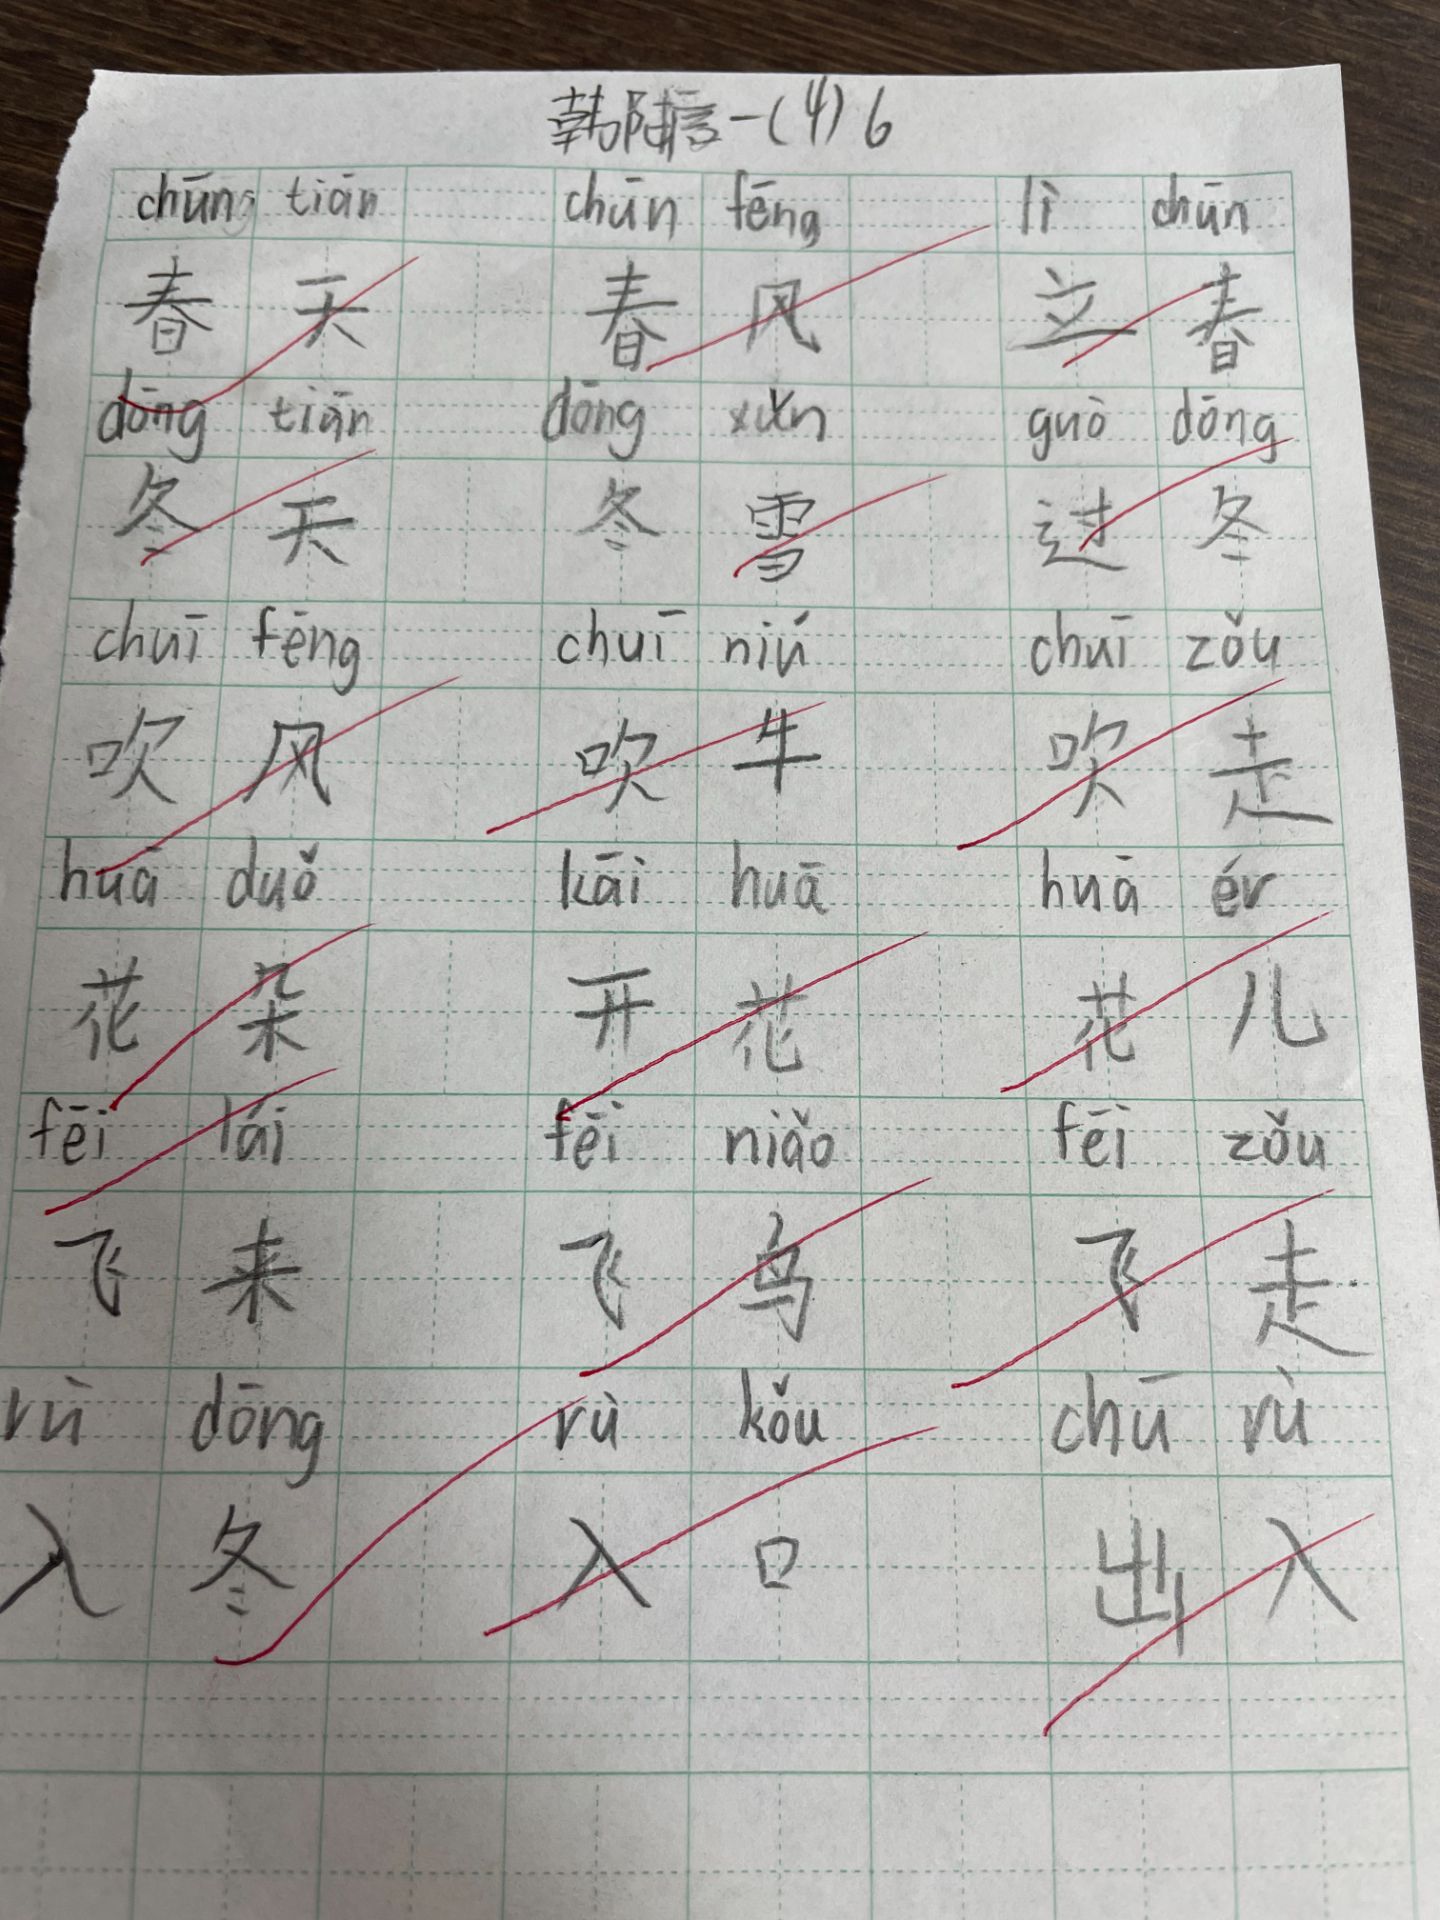 韩陆言一(4)6
chūn tiān chūn fēng lì chūn
春天 春风 立春
dōng tiān dōng guò dōng
冬天 冬雪 过冬
chuī fēng chuī niú chuī zǒu
吹风 吹牛 吹走
huā duǒ kāi huā huā ér
花朵 开花 花儿
fēi lái fēi niǎo fēi zǒu
飞来 飞鸟 飞走
rù dōng rù kǒu chū rù
入冬 入口 出入